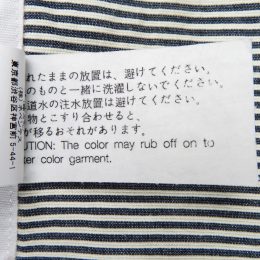 れたままの放置は、避けてください。
のものと一緒に洗濯しないでください。
道水の注水放置は、避けてください。
物とこすり合わせると、
が移るおそれがあります。
UTION: The color may rub off on to
er color garment.
東京都渋谷区神宮前 5-44-1